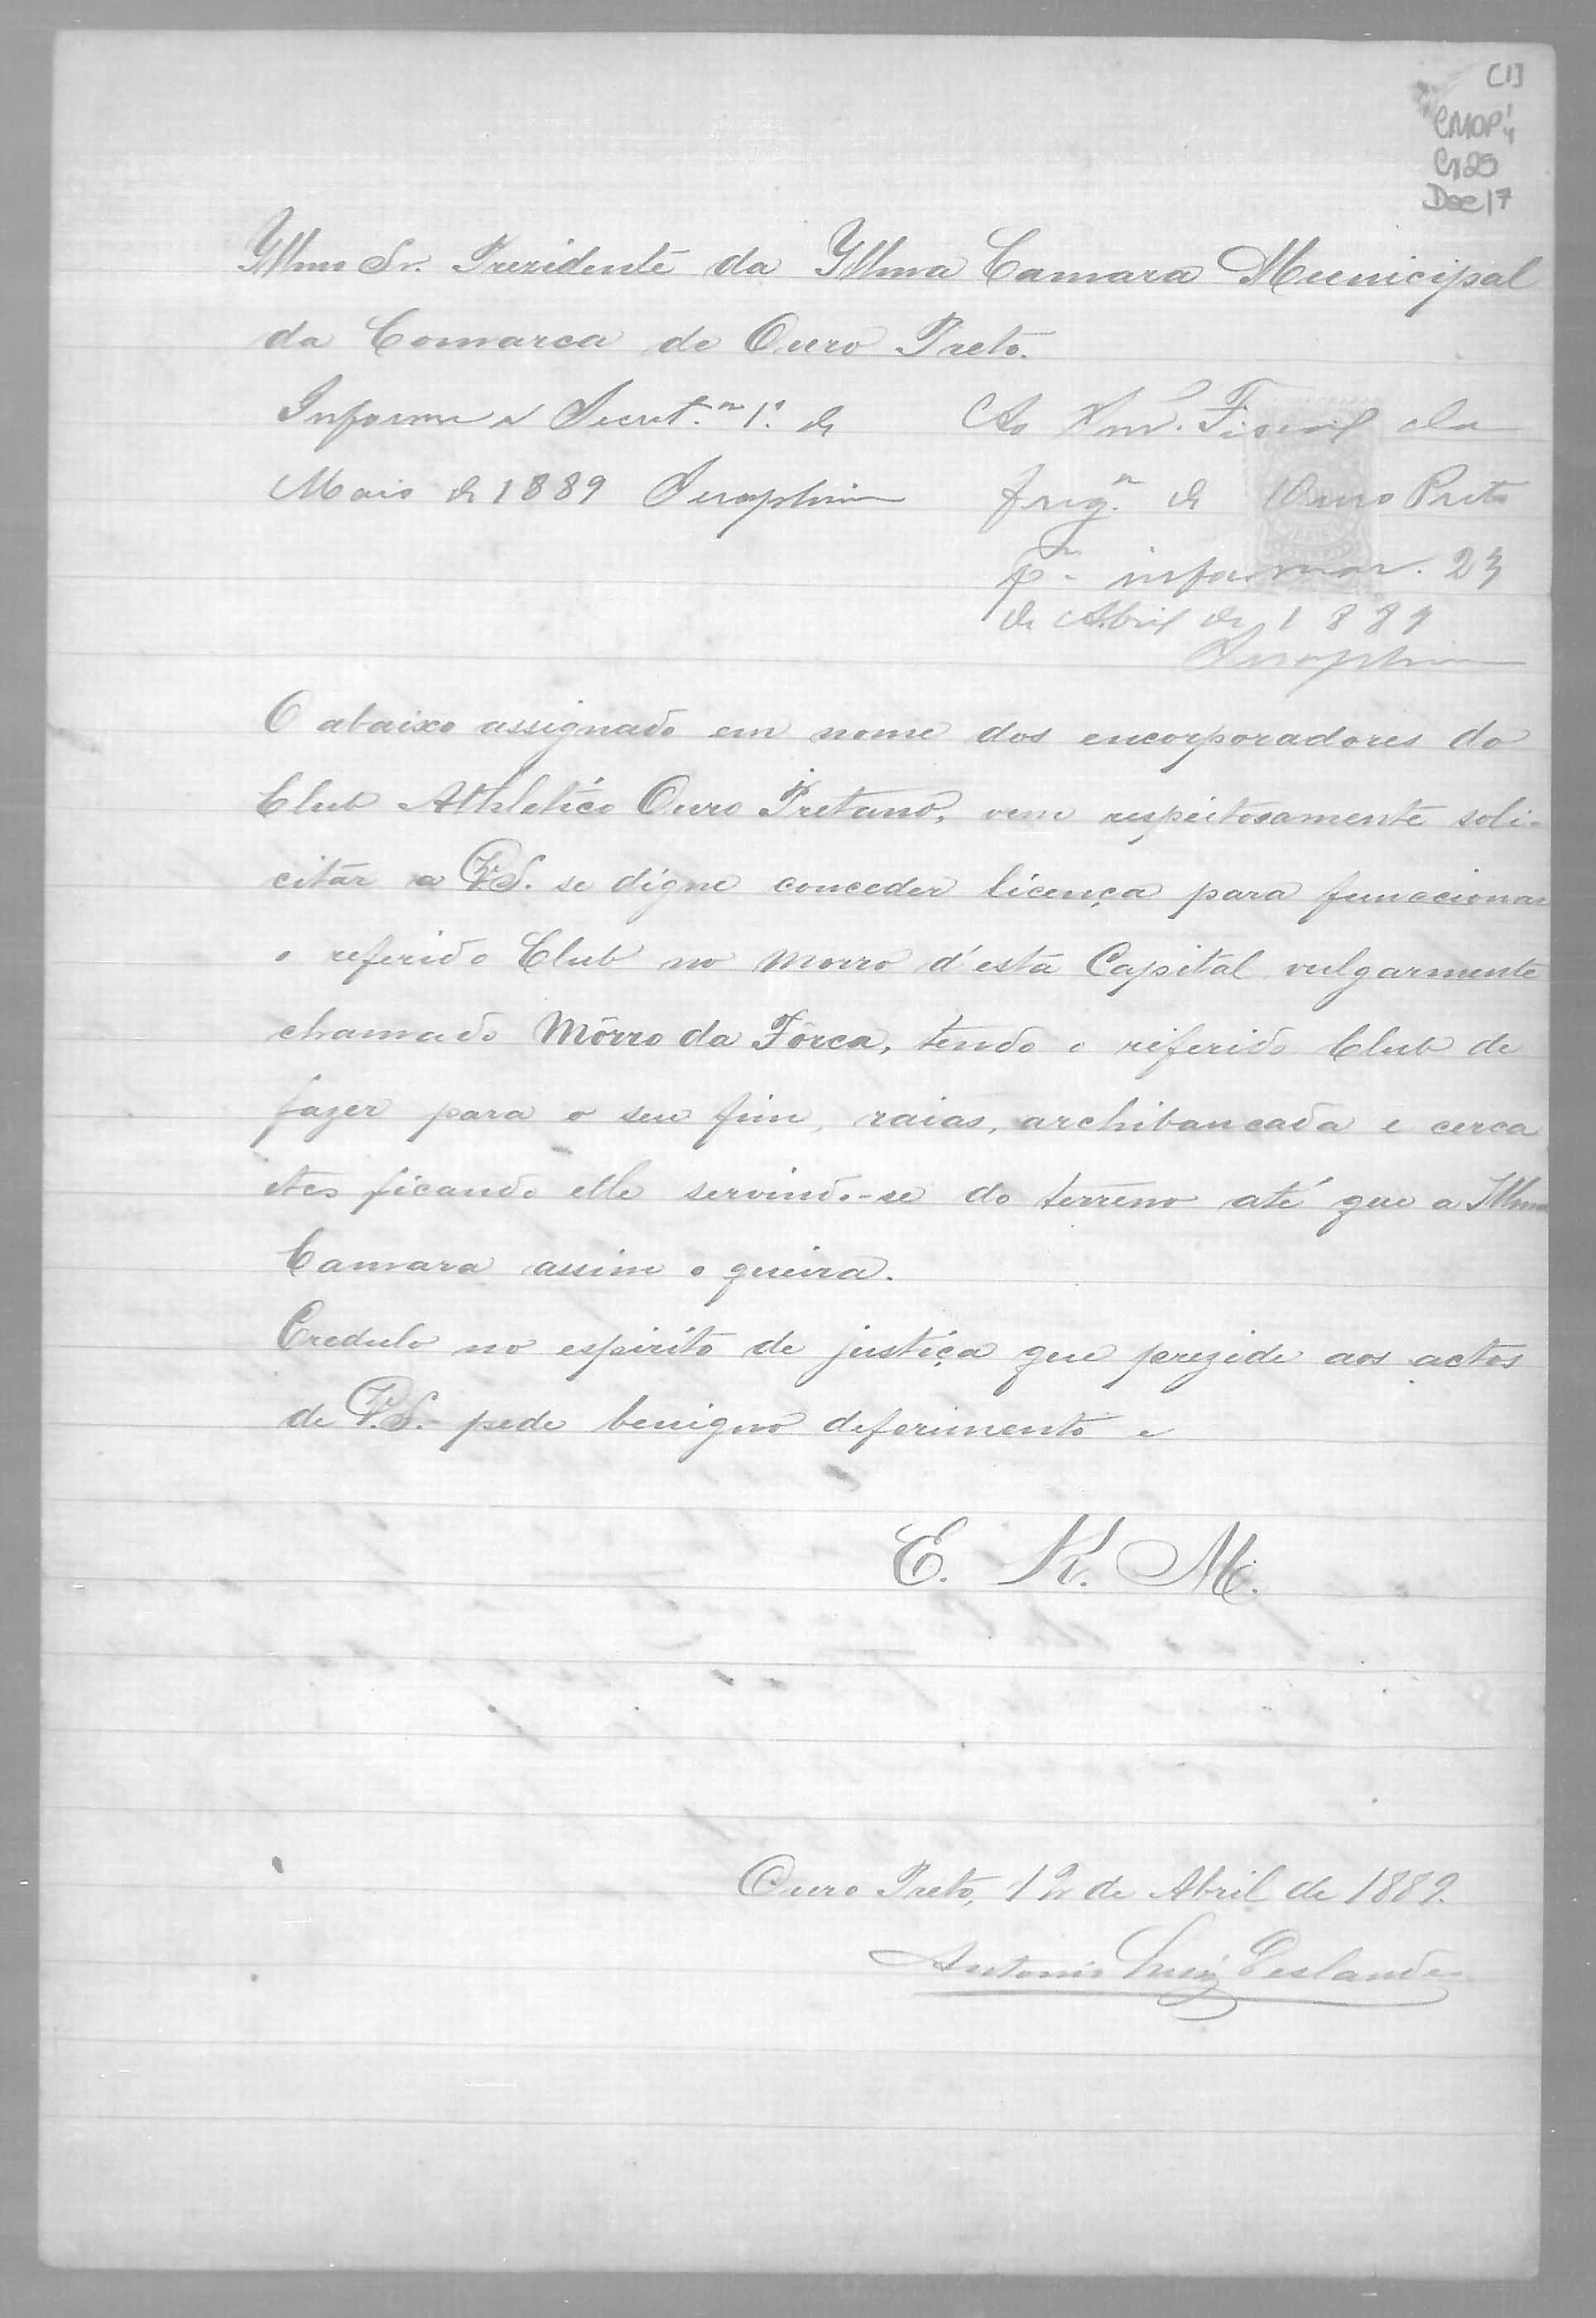 [1]
CMOP
Cx25
Doc 17
Illmo Sr. Prezidente da Illma Camara Municipal
da Comarca de Ouro Preto.
Informe a Secret.ª 1.º de
Maio de 1889 Seraphim
Ao Snr. Fiscal da
freg.ª de Ouro Preto
p.ª informar. 23
de Abril de 1889
Seraphim
O abaixo assignado em nome dos encorporadores do
Club Athletico Ouro Pretano, vem respeitosamente soli-
citar a V.S. se digne conceder licença para funccionar
o referido Club no morro d'esta Capital vulgarmente
chamado Môrro da Fôrca, tendo o referido Club de
fazer para o seu fim, raias, archibancada e cerca
etes ficando elle servindo-se do terreno até que a Illma
Camara assim o queira.
Credulo no espirito de justiça que prezide aos actos
de V.S. pede benigno deferimento e
E. R. M.
Ouro Preto, 12 de Abril de 1889.
Antonio Luiz Deslandes